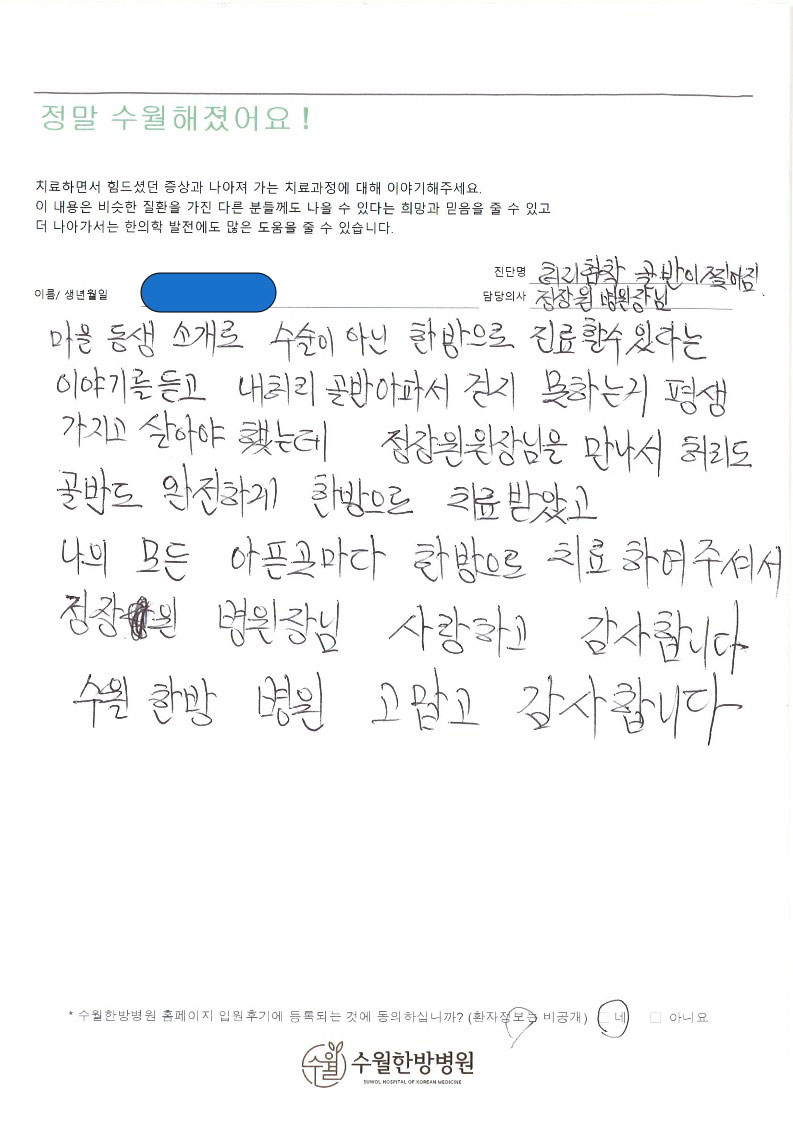 정말 수월해졌어요!
치료하면서 힘드셨던 증상과 나아져 가는 치료과정에 대해 이야기해주세요.
이 내용은 비슷한 질환을 가진 다른 분들께도 나을 수 있다는 희망과 믿음을 줄 수 있고
더 나아가서는 한의학 발전에도 많은 도움을 줄 수 있습니다.
진단명 허리협착 골반이찢어짐.
이름/ 생년월일 담당의사 정장원 병원장님
마을 동생 소개로 수술이 아닌 한방으로 진료할수있다는
이야기를듣고 내허리 골반아파서 걷지 못하는거 평생
가지고 살아야 했는데 정장원원장님을 만나서 허리도
골반도 완전하게 한방으로 치료받았고
나의 모든 아픈곳마다 한방으로 치료하여주셔서
정장원 병원장님 사랑하고 감사합니다
수월한방 병원 고맙고 감사합니다
* 수월한방병원 홈페이지 입원후기에 등록되는 것에 동의하십니까? (환자정보는 비공개) □ 네 □ 아니요
수월 수월한방병원
SUWOL HOSPITAL OF KOREAN MEDICINE